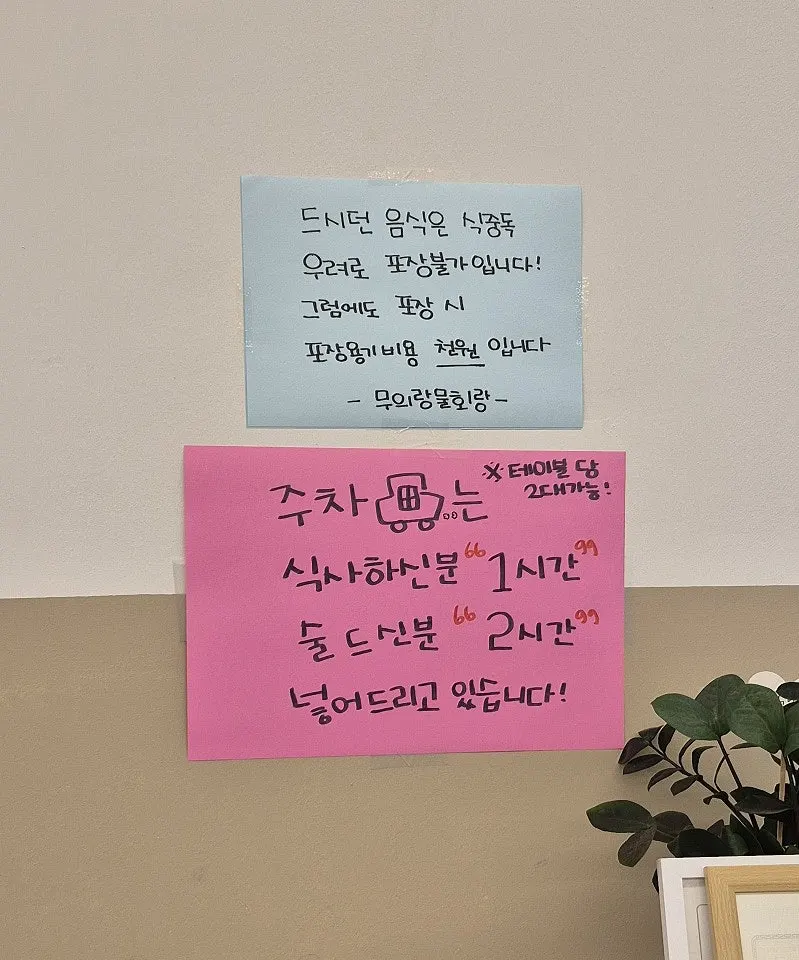 드시던 음식은 식중독
우려로 포장불가입니다!
그럼에도 포장 시
포장용기비용 천원 입니다
- 무의랑물회랑 -
※ 테이블 당
2대가능!
주차 는
식사하신분 “1시간”
술 드신분 “2시간”
넣어드리고 있습니다!